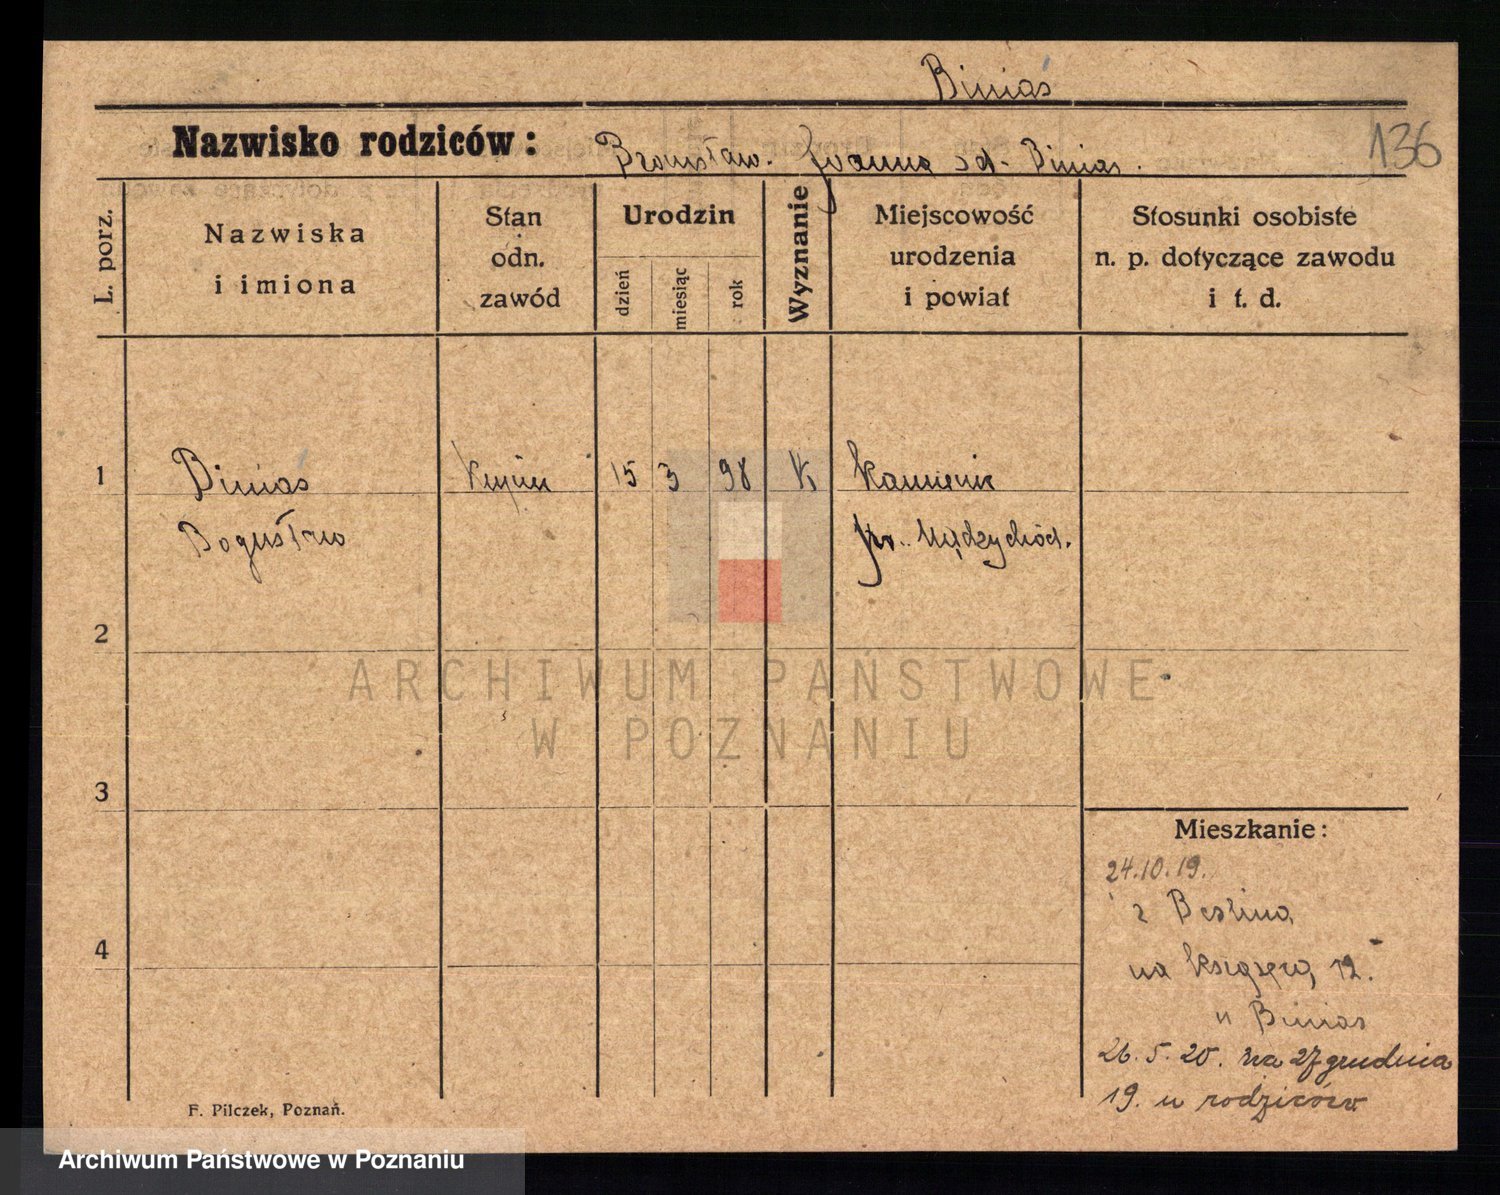 Biniaś
Nazwisko rodziców: Bronisław. Joanna sd. Binias.
136
L. porz.
Nazwiska
i imiona
Stan
odn.
zawód
Urodzin
dzień
miesiąc
rok
Wyznanie
Miejscowość
urodzenia
i powiat
Stosunki osobiste
n. p. dotyczące zawodu
i t. d.
1 Biniaś kupiec 15 3 98 k
Bogusław pr. Międzychód.
2
ARCHIWUM PAŃSTWOWE
W POZNANIU
3
Mieszkanie:
24.10.19.
z Berlina
na 12.
4
u Binias
26.5.20. na 27 grudnia
19. u rodziców
F. Pilczek, Poznań.
Archiwum Państwowe w Poznaniu